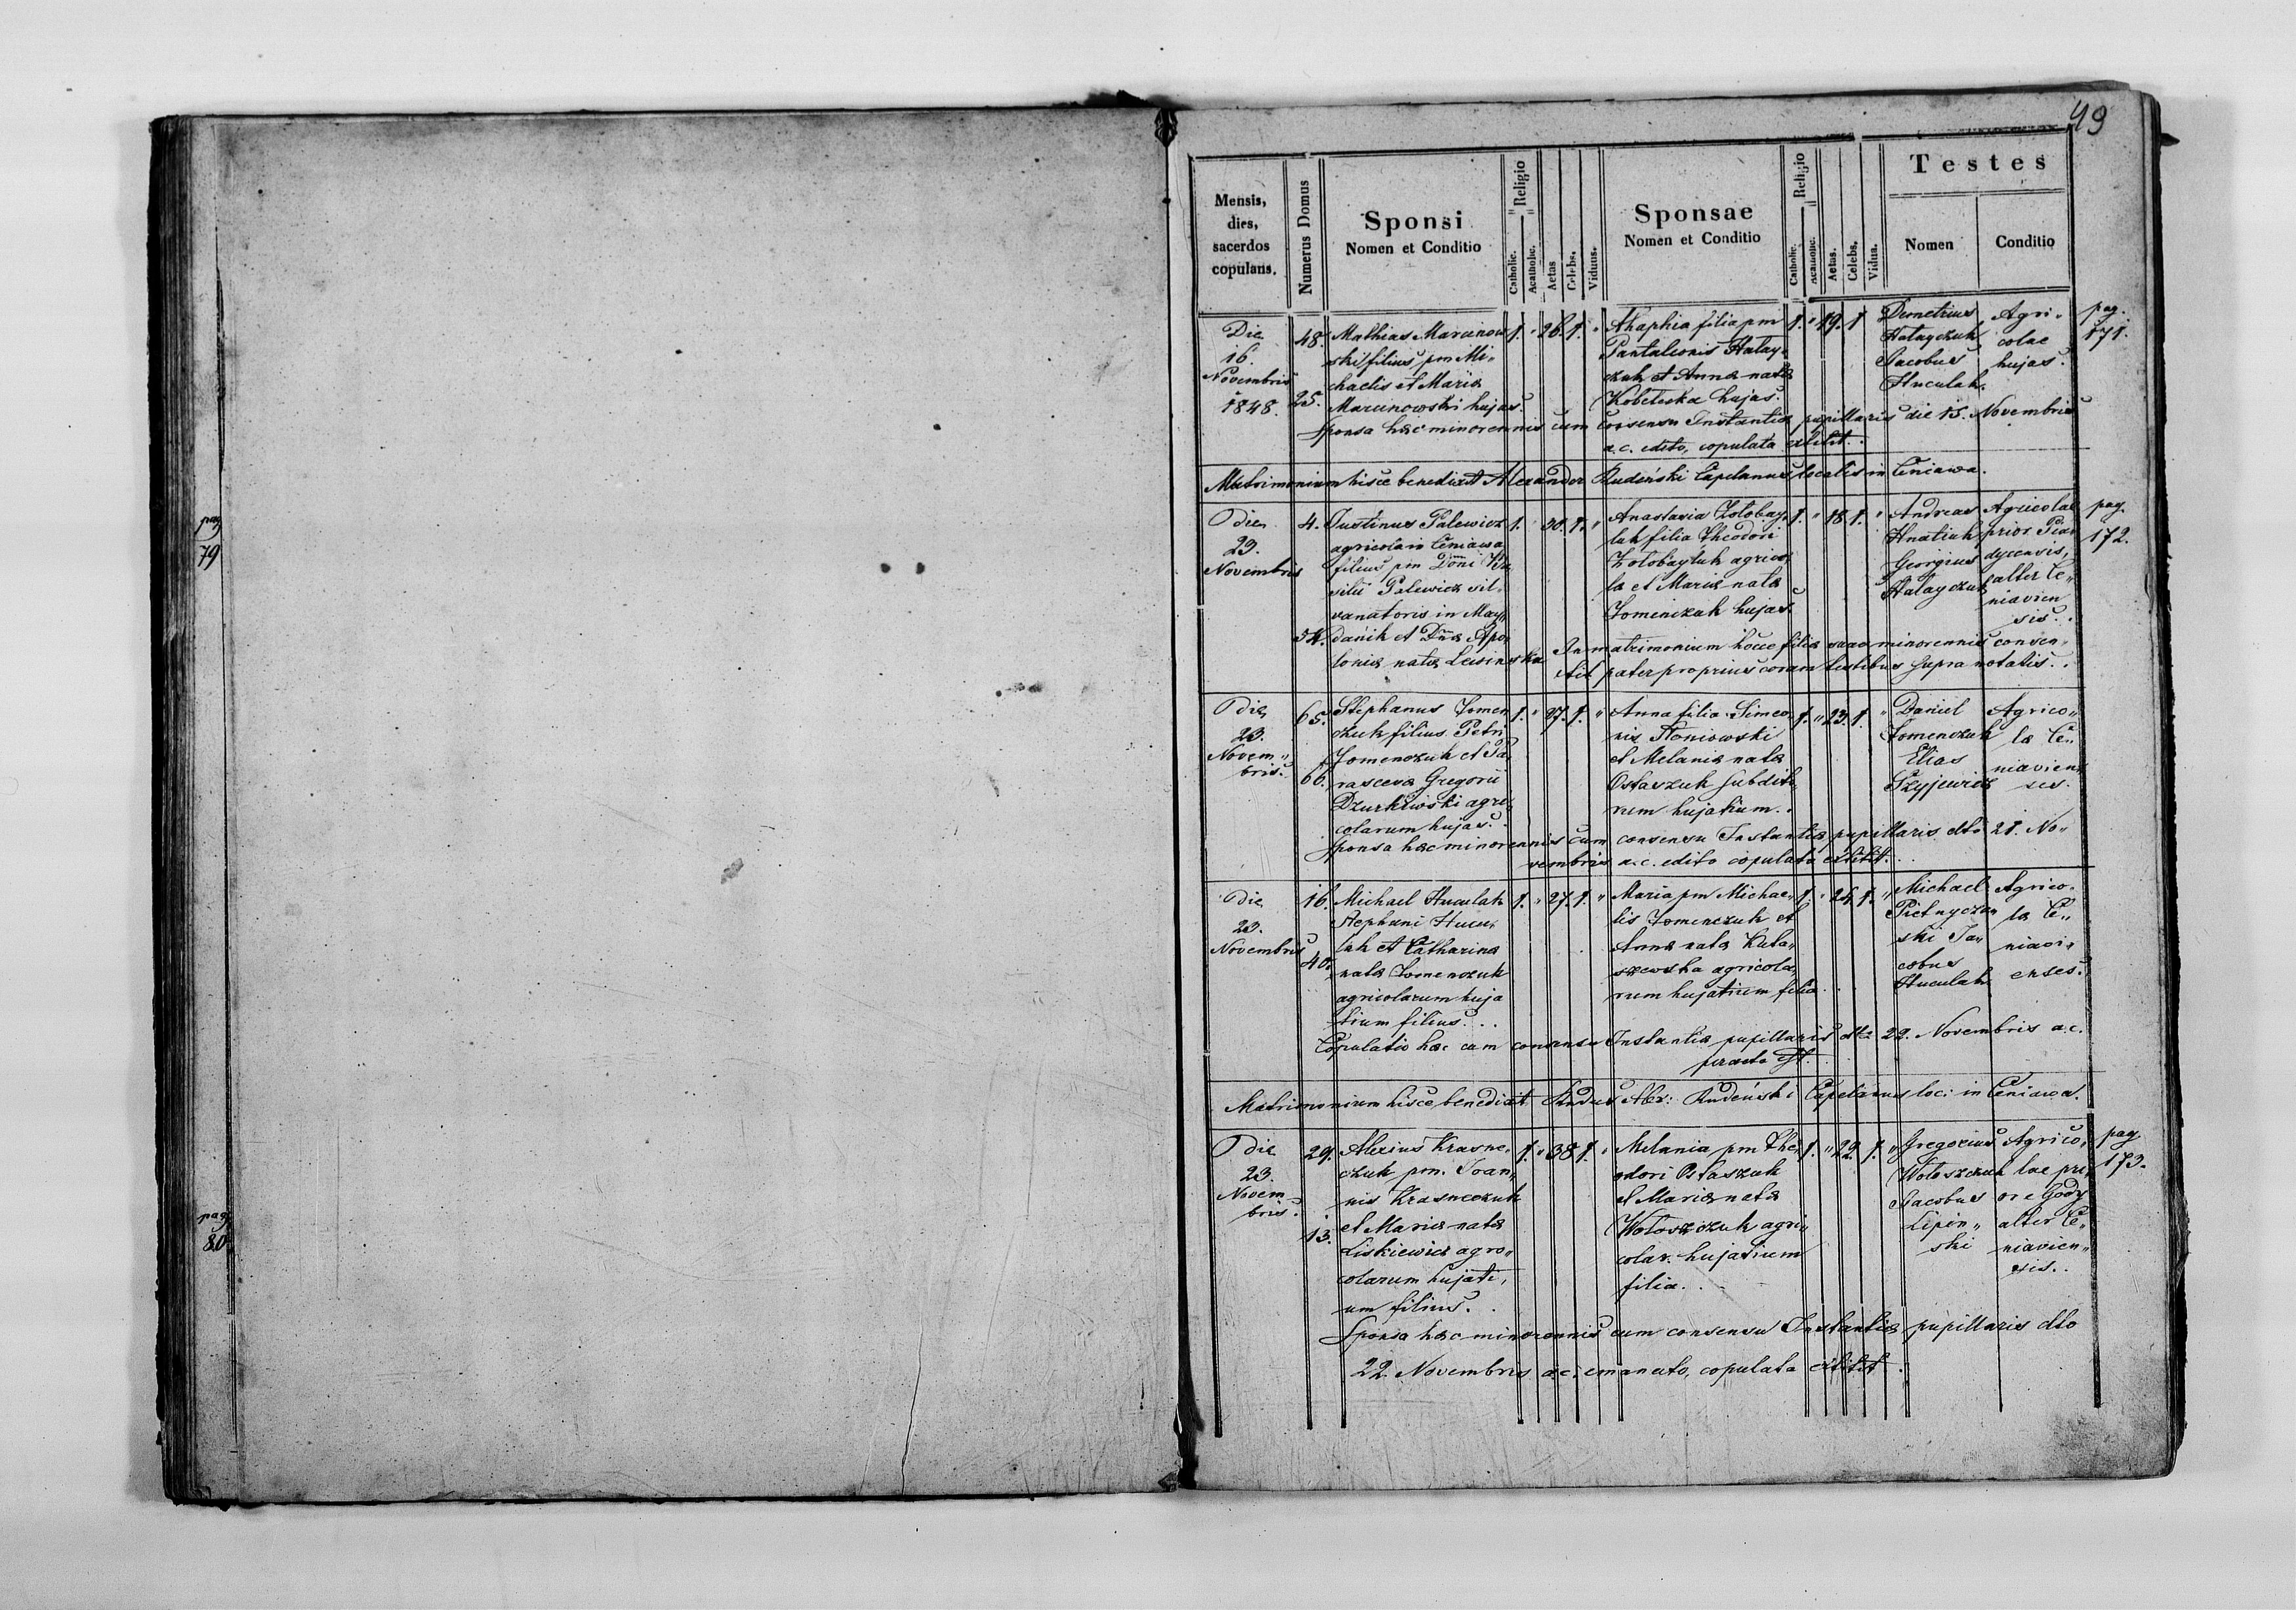 49
pag
79
pag
80
Mensis, dies, sacerdos copulans.
Numerus Domus
Sponsi
Nomen et Conditio
Religio
Catholic.
Acatholic.
Aetas
Celebs.
Viduus.
Sponsae
Nomen et Conditio
Religio
Catholic.
Acatholic.
Aetas.
Celebs.
Vidua.
Testes
Nomen
Conditio
Die
16.
Novembris
1848.
48.
25.
Mathias Marcinow
ski filius pm Mi„
chaelis et Maria
Marcinowski hujas.
1. „ 26. 1. „
Ahaphia filia pm
Pantaleonis Halay„
czuk et Anna nata
Kobeleska hujas.
1. „ 19. 1
Demetrius
Halayczuk
Jacobus
Huculak.
Agri„
colae
hujas.
pag.
171.
Sponsa haec minorennis cum consensu Instantia pupillaris die 15. Novembris
a.c. edito, copulata extitit.
Matrimonium hisce benedixit Alexander Rudeński Capelanus localis in Ceniawa.
Die
23.
Novembris
4.
54.
Justinus Galewicz
agricola in Ceniawa
filius pm Domi Va
silii Galewicz sil„
vanatoris in May„
danik et Dna Apo„
lonia nata Lesinska
1. „ 30. 1. „
Anastasia Zolobay„
luk filia Theodori
Zolobayluk agrico„
la et Maria nata
Tomenczuk hujas.
1. „ 18. 1. „
Andreas
Hnatiuk
Georgius
Halayczuk
Agricolae
prior Pia
dycensis,
alter Ce„
niavien
sis.
pag.
172.
In matrimonium hocce filia suae minorennis consen„
tit pater proprius coram testibus supra notatis.
Die
23.
Novem„
bris.
65.
66.
Stephanus Tomen
czuk filius Petri
Tomenczuk et Pa
rasceva Gregorii
Dzurkiwski agri„
colarum hujas.
1. „ 27. 1. „
Anna filia Simeo„
nis Floniowski
et Melania nata
Ostaszuk subdito
rum hujatium.
1. „ 23. 1. „
Daniel
Tomenczuk
Elias
Gryjewicz
Agrico„
la Ce„
niavien„
ses.
Sponsa haec minorennis cum consensu Instantia pupillaris dto 21. No„
vembris a.c. edito copulata extitit.
Die
23.
Novembris
16.
40.
Michael Huculak
Stephani Hucu„
lak et Catharina
nata Tomenczuk
agricolarum huja
tium filius.
1. „ 27. 1. „
Maria pm Michae„
lis Tomenczuk et
Anna nata Kula„
szewska agricola„
rum hujatium filia
1. „ 24. 1. „
Michael
Pietnyczan
ski Ja„
cobus
Huculak
Agrico„
la Ce„
niavi„
enses.
Copulatio haec cum consensu Instantia pupillaris dto 22. Novembris a.c.
peracta est.
Matrimonium hisce benedixit Rndus Alex: Rudeński Capelanus loc: in Ceniawa.
Die
23.
Novem
bris.
29.
13.
Alexius Krasne„
czuk pm. Joan„
nis Krasneczuk
et Maria nata
Liskiewicz agro„
colarum hujati„
um filius.
1. „ 38 1. „
Melania pm The„
odori Ostaszuk
et Maria nata
Woloszczuk agri„
colar. hujatium
filia.
1. „ 22. 1. „
Gregorius
Woloszczuk
Jacobus
Lipin„
ski
Agrico„
lae pri„
or e Gody
alter Ce„
niavien„
sis.
pag
173.
Sponsa haec minorennis cum consensu Instantia pupillaris dto
22. Novembris a.c. emanato, copulata extitit.